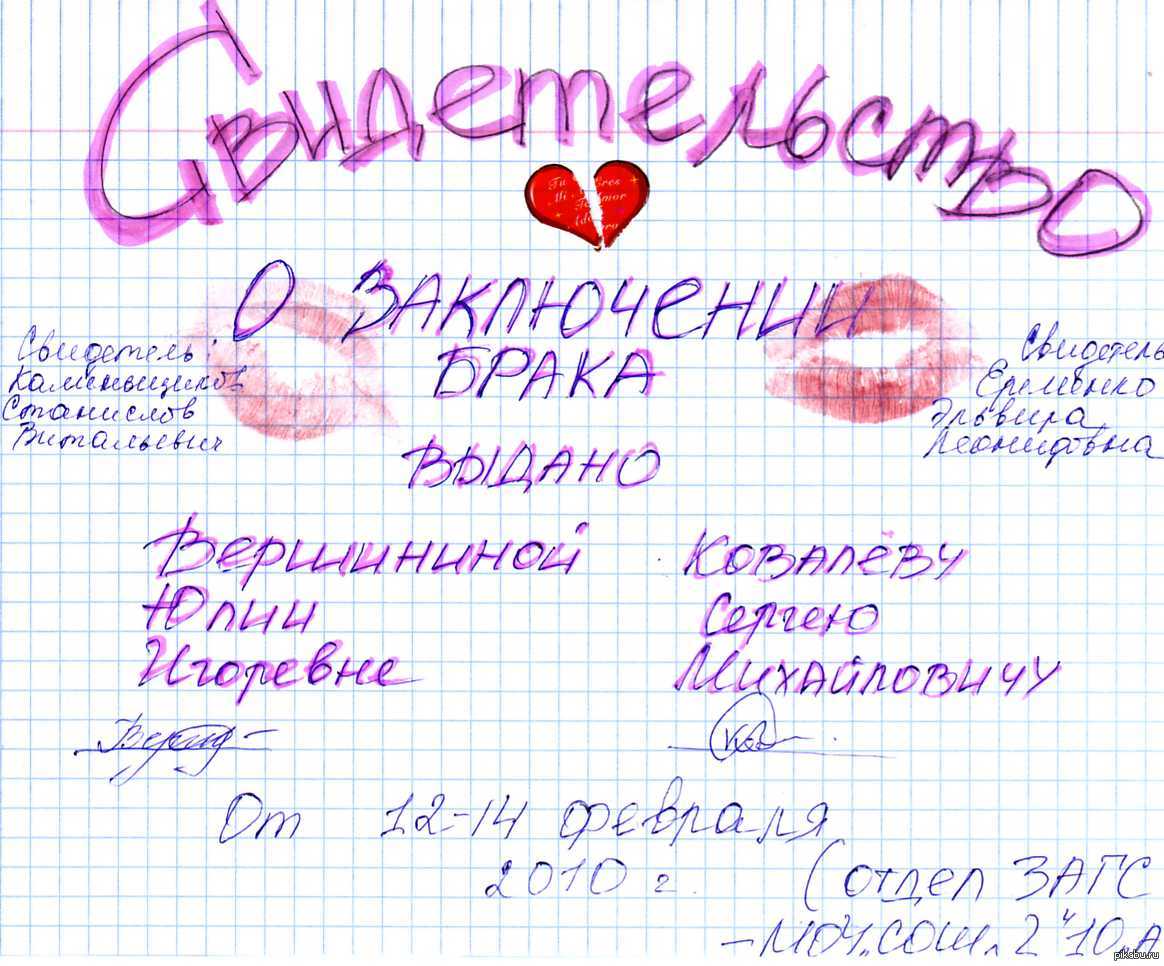 Свидетельство
Tu Eres
Mi Amor
Te
О ЗАКЛЮЧЕНИИ
БРАКА
Свидетель:
Каменьщиков
Станислов
Витальевич
Свидетель
Ерменко
Эльвира
Леонидовна
ВЫДАНО
Вершининой
Юлии
Игоревне
Ковалёву
Сергею
Михайловичу
От 12-14 февраля
2010 г. (отдел ЗАГС
- МОУ. СОШ. 2 "10 А
pikabu.ru